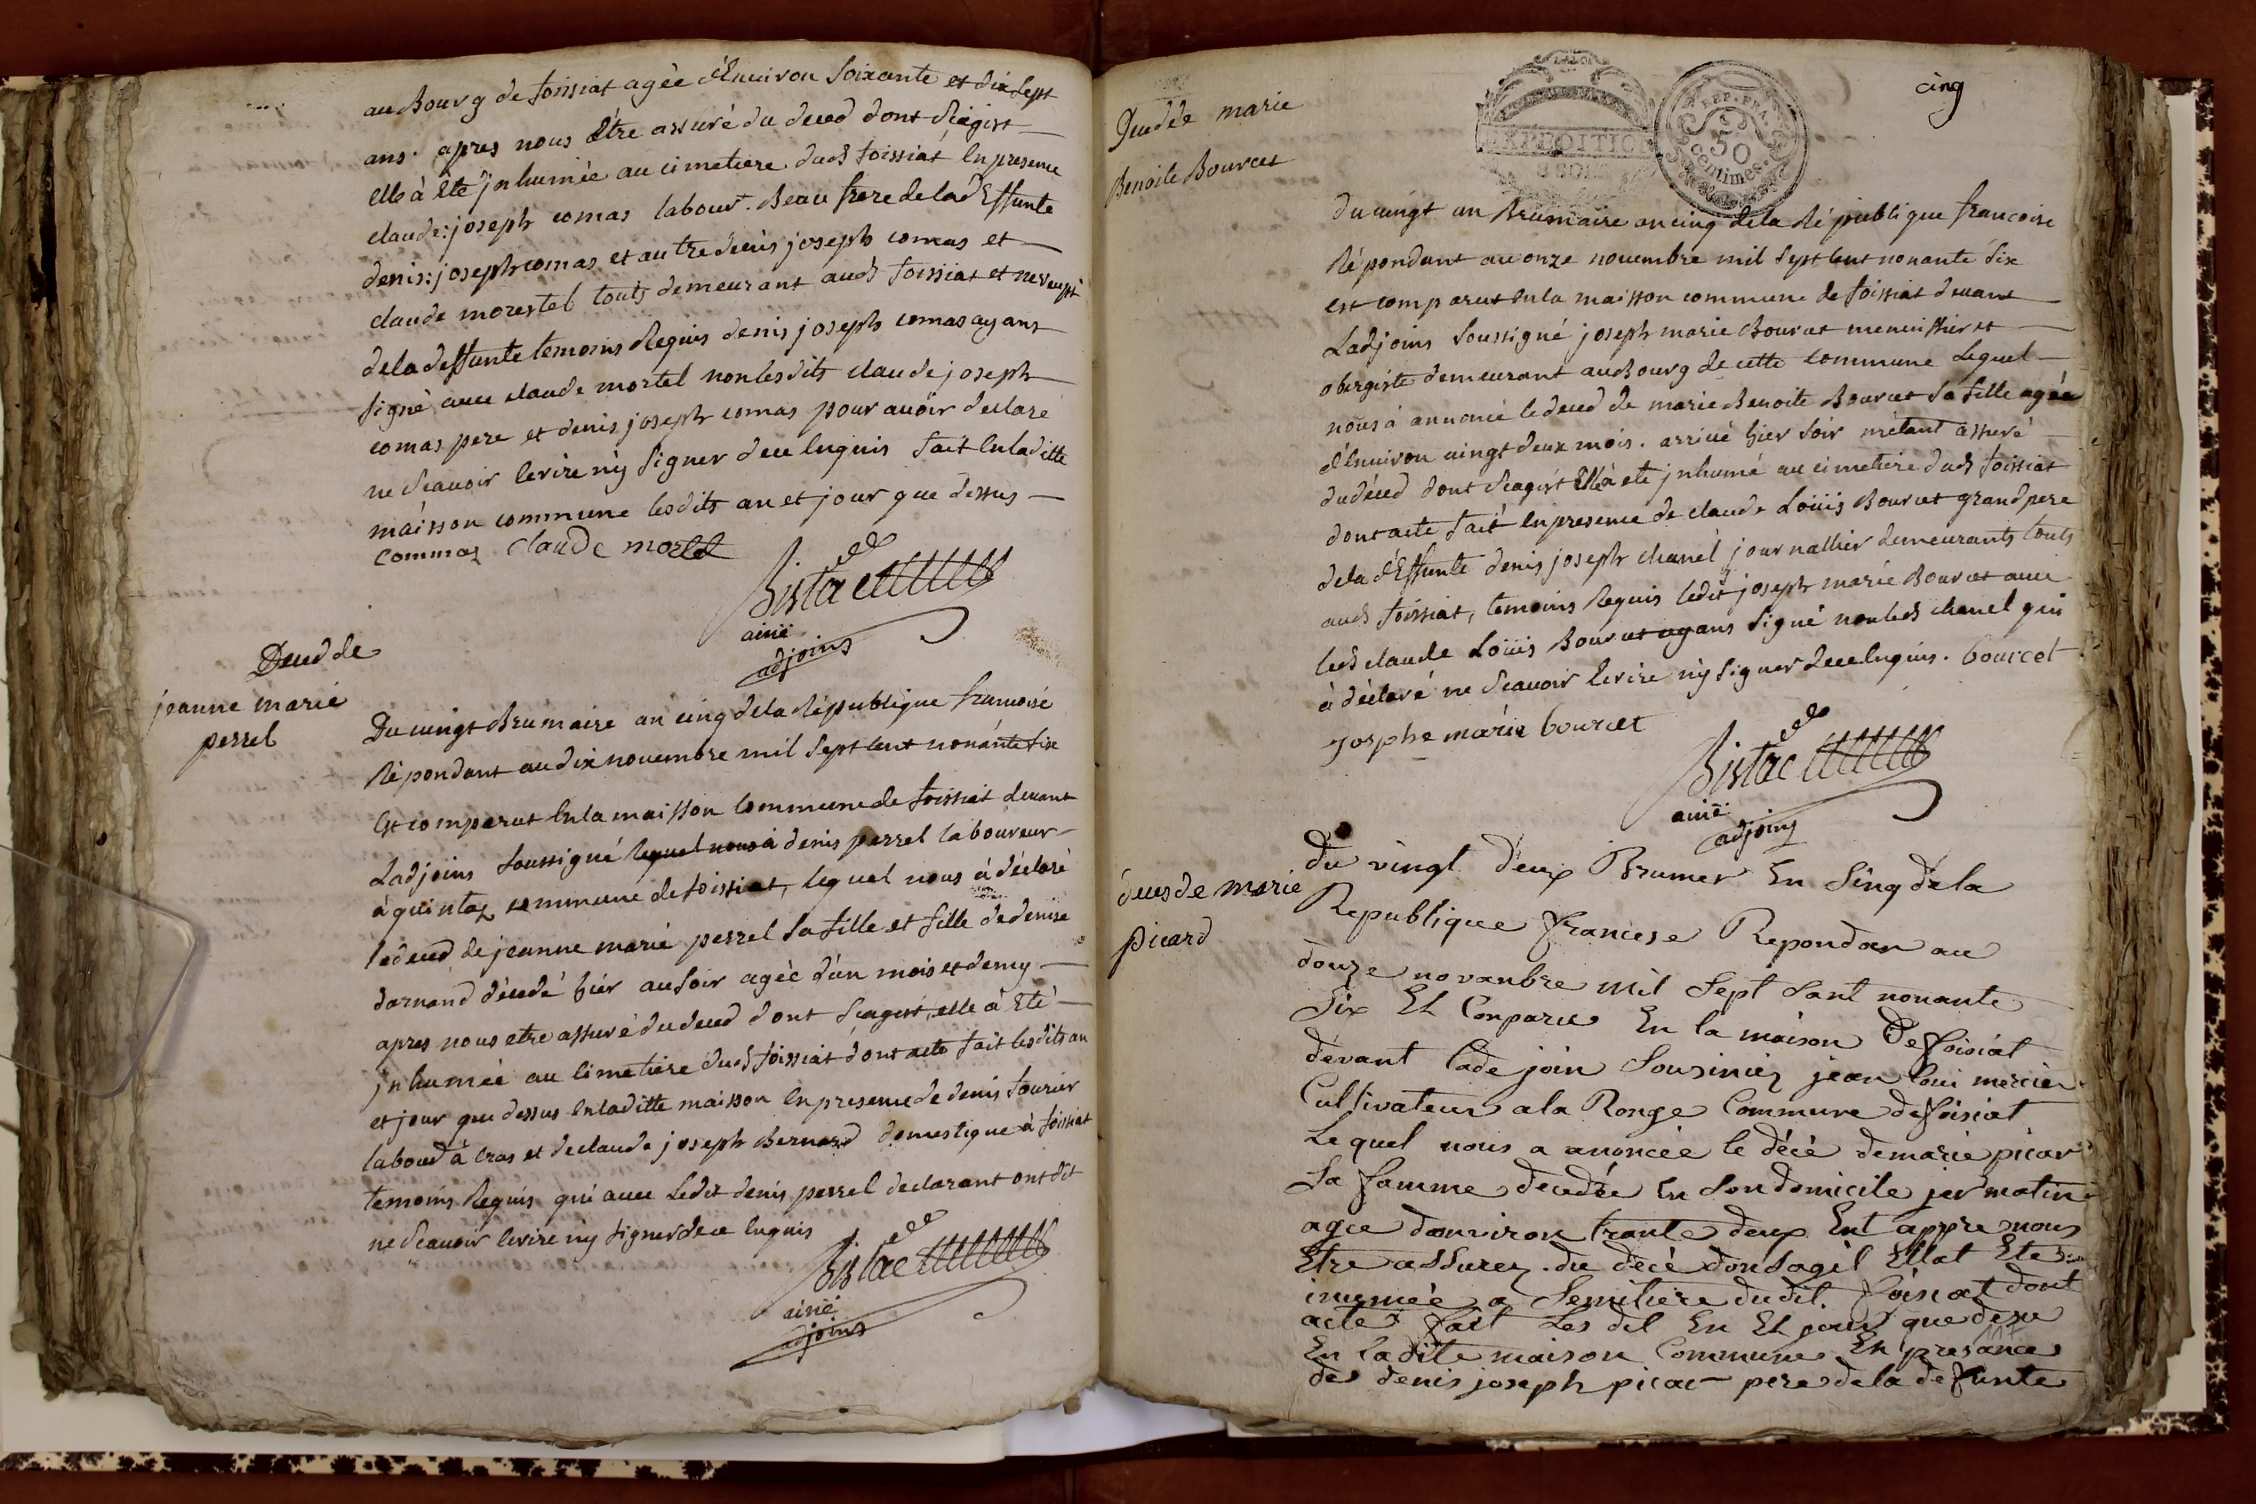 au Bourg de foissiat agèe d'Enuiron Soixante et dix Sept
ans. apres nous Etre assuré du deced dont S'agist
elle à Eté jnhumèe au cimetiere dud foissiat En presence
claude: joseph comas labour. Beau frere de la dEffunte
denis: joseph comas et autre denis joseph comas et
claude morestel touts demeurant aud foissiat et neveux
de la deffunte temoins Requis denis joseph comas ayant
signè auec claude mortel non lesdits claude joseph
comas pere et denis joseph comas pour auoir declaré
ne Scauoir Ecrire ny Signer de ce Enquis fait En laditte
maisson commune lesdits an et jour que dessus
commas claude mortel
Bistac
ainé
adjoins
Deced de
jeanne marie
perrel
Du uingt Brumaire an cinq de la Republique francoise
Répondant au dix nouembre mil Sept Cent nonante Six
Est comparut En la maisson Commune de foissiat deuant
Ladjoins Soussigné lequel nous à denis perrel laboureur
à quintaz commune de foissiat, lequel nous à déclaré
le deced de jeanne marie perrel Sa fille et fille de denise
darnand décedé hier au soir agèe d'un mois et demy
apres nous etre assuré du deced dont S'agist, elle à Eté
jnhumèe au Cimetiere dud foissiat dont acte fait lesdits an
et jour que dessus En laditte maisson En presence de denis fourier
labour à Cras et de claude joseph Bernard domestique à foissiat
temoins Requis qui auec Ledit denis perrel declarant ont dit
ne Scauoir Ecrire ny signer de ce Enquis
Bistac
ainé
adjoins
cinq
EXPEDITION
REP. FRA.
50
centimes
Deced de marie
Benoite Bourcet
Du uingt un Brumaire an cinq de la Republique francoise
Répondant au onze nouembre mil Sept Cent nonante Six
est comparut En la maisson commune de foissiat deuant
Ladjoins Soussigné joseph marie Bourcet menuissier et
obergiste demeurant au Bourg de cette Commune Lequel
nous à annoncé le deced de marie Benoite Bourcet Sa fille agée
d'Enuiron uingt deux mois. arriué hier Soir m'étant assuré
du déced dont S'agist Elle à eté jnhumé au cimetiere dud foissiat
dont acte fait En presence de claude Loüis Bourcet grand pere
de la dEffunte denis joseph chanel journallier demeurants touts
aud foissiat, temoins Requis ledit joseph marie Bourcet auec
led claude Loüis Bourcet ayans Signé non led chanel qui
à déclaré ne Scauoir Ecrire ny signer de ce Enquis. bourcet
josphe marie bourcet
Bistac
ainé
adjoins
deces de marie
picard
du vingt deux Brumer En Sinq de la
Republique francese Repondan au
douze novanbre mil Sept Sant nonante
Six Et Conparu En la maison De foisiat
devant Lade join Sousiniez jean loui mercier
Cultivateur a la Ronge Commune de foisiat
Le quel nous a anoncée le décè de marie picar
Sa famme decedée En Son domicile jer matin
agee danviron trante deux Ent appre nous
Etre assurez du décè don Sagil Ellat Ete
inumée a Semitiere du dit foisiat dont
acte fait Les dil En Et jour que desu
En Ladite maison Commune En presance
de denis joseph picar pere de la defunte